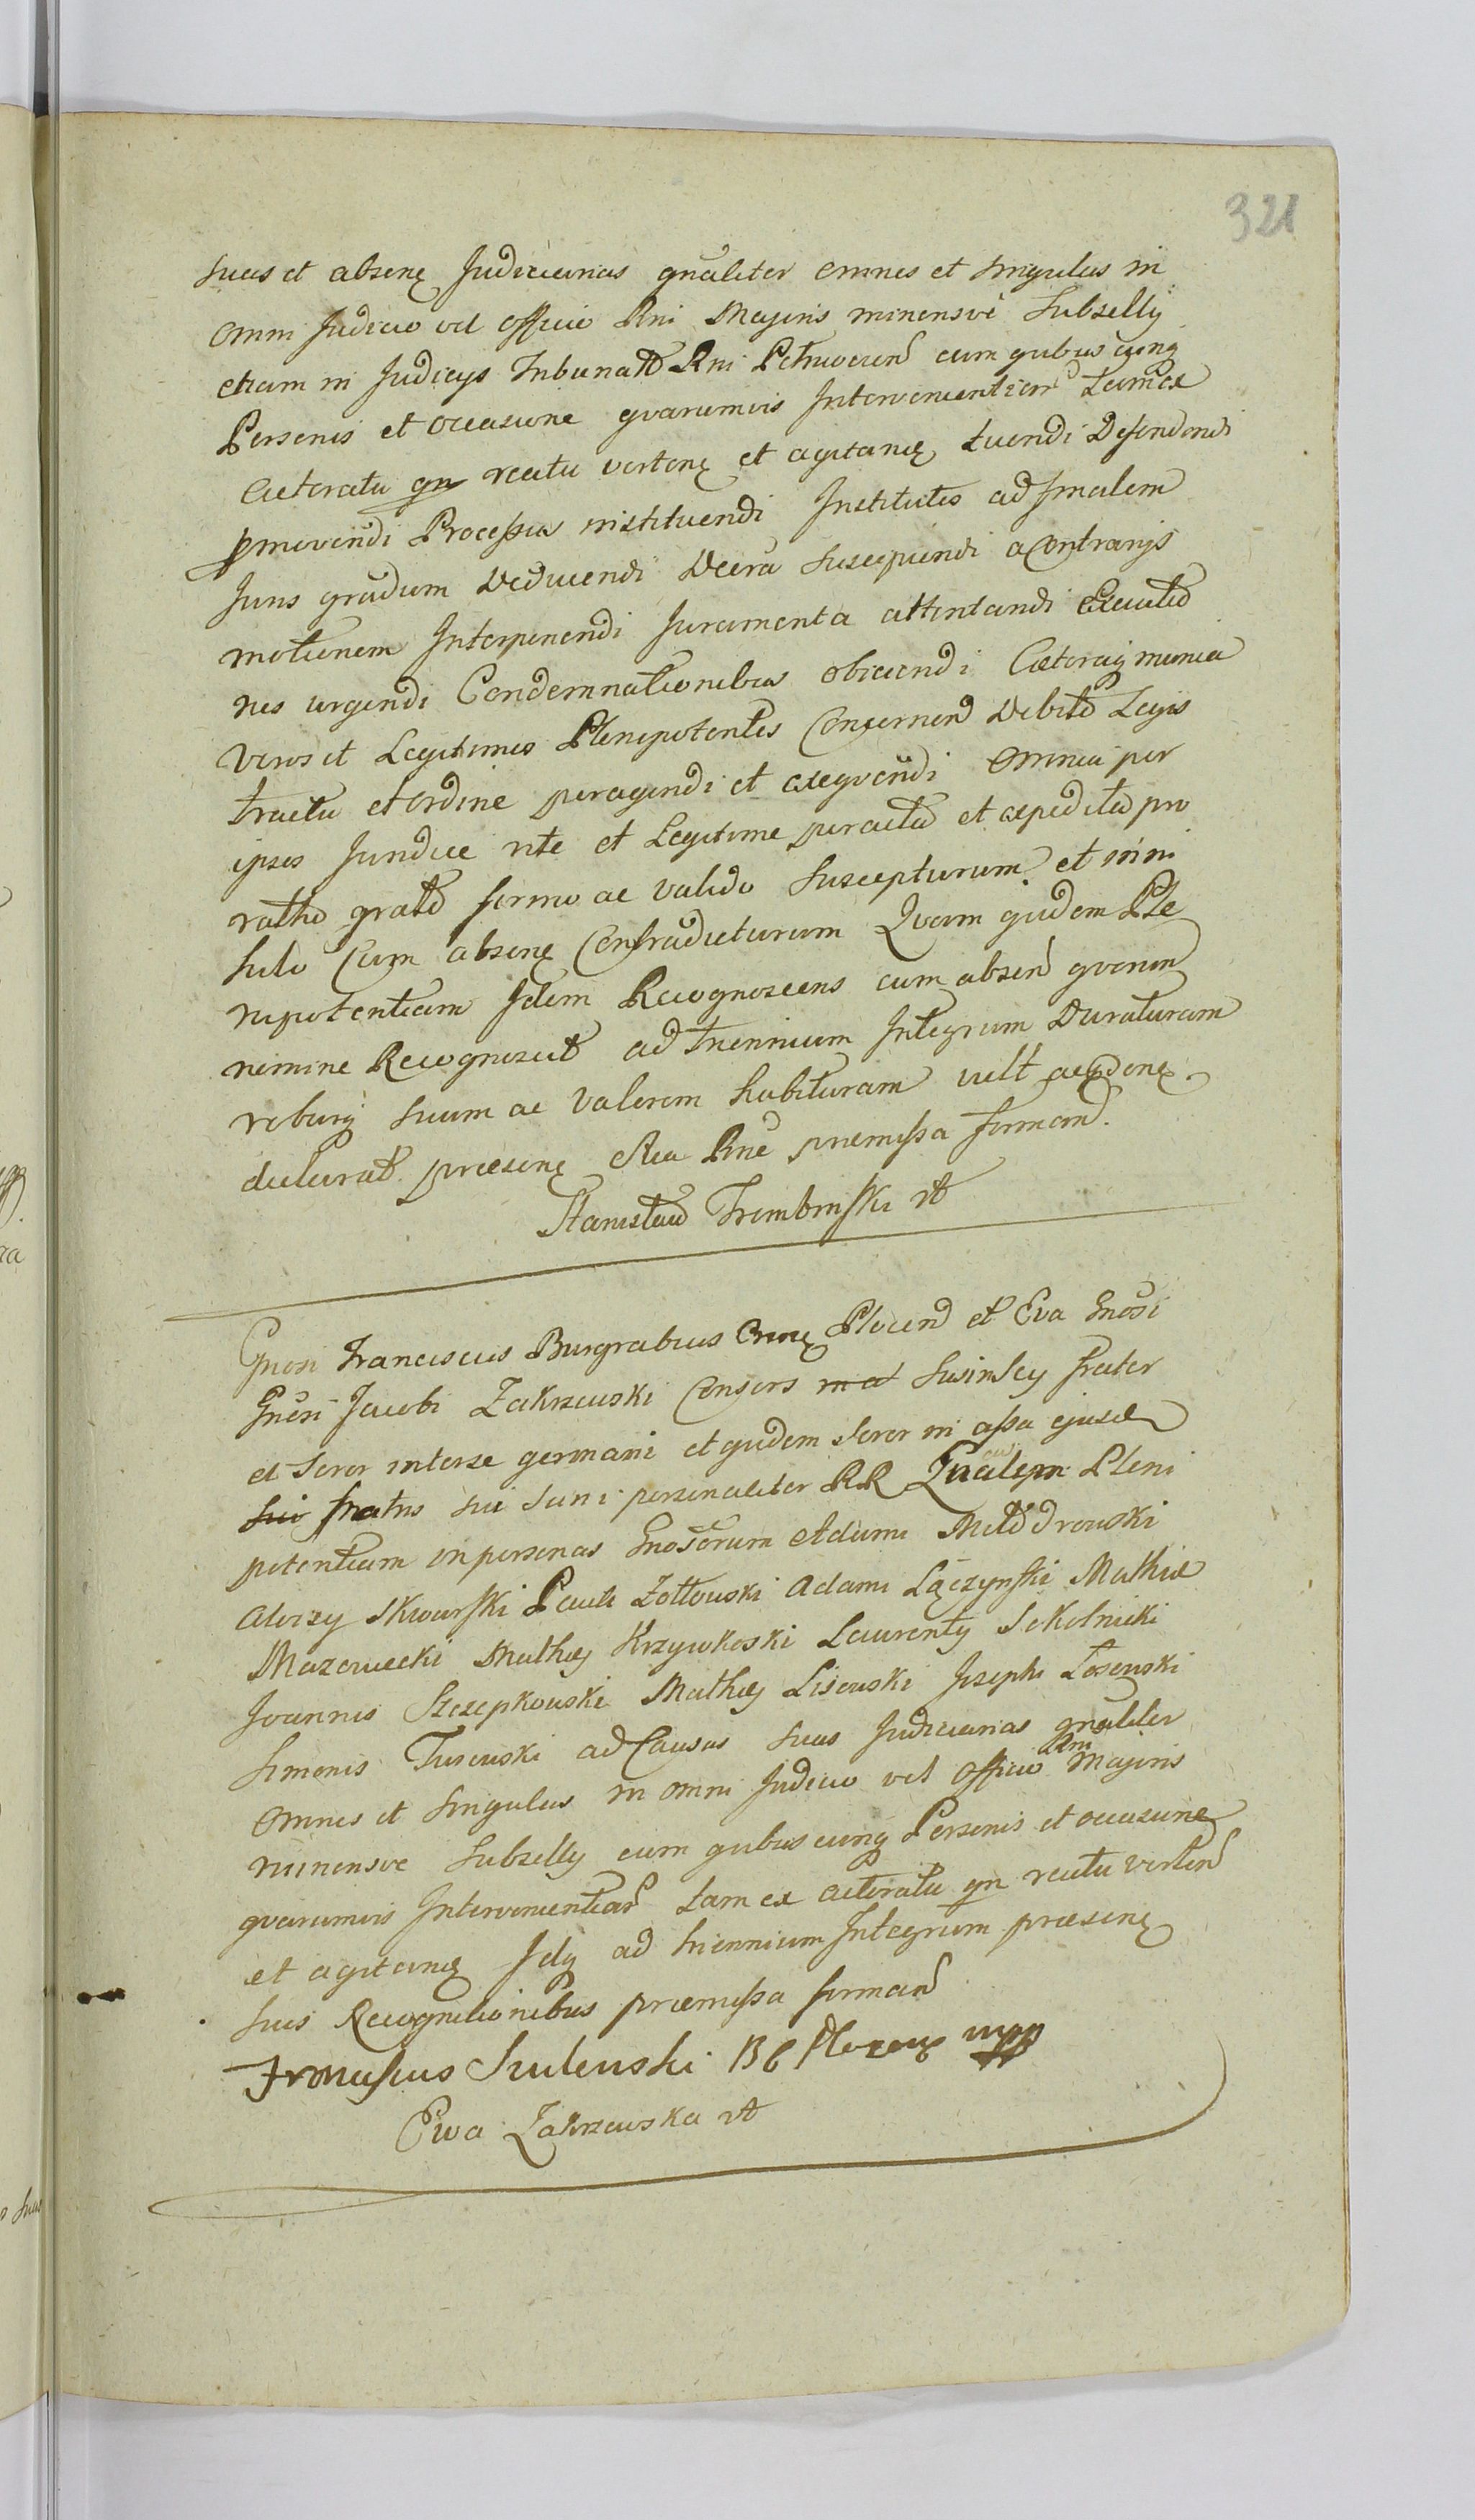 321
suas et absenę Judiciarias gnāliter omnes et singulas in
omni Judicio vel Officio Rni Majoris minorisvè Subsellij
etiam in Judicijs Tribunalt Rni Petricoven cum quibuscunq
Personis et occasione qvarumvis Intervenientiar tam ex
acteratu qn reatu vertenę et agitanę tuendi Defendendi
pmovendi Processus instituendi Institutos ad finalem
Juris gradum Deducendi Decra suscipiendi a Contrarijs
motionem Interponendi Juramenta attentandi Executio
nes urgendi Condemnationibus obiiciendi Caeteraq munia
veros et Legitimos Plenipotentes Concernen Debito Legis
tractu et Ordine peragendi et exeqvendi Omnia per
ipsos Juridice rite et Legitime peracta et expedita pro
ratho grato firmo ac valido Suscepturum et in ni
hilo Cum absenę Contradicturum Qvam quidem Ple
nipotentiam Idem Recognoscens cum absen qvorum
nomine Recognoscit ad triennium Integrum Duraturam
roburq suum ac Valorem habituram vult
declarat praesenę Sua Rne praemissa firman.
Stanisław Trembinski rt
Gnosi Franciscus Burgrabius Plocen et Eva Gnosi
Gnosi Jacobi Zakrzewski Consors Frater
et Soror interse germani et quidem Soror in assa ejusd
sui fratris sui Sani personaliter RR Gnalem Pleni
potentiam in personas Gnosorum Adami
Aloizy Skwarski Pauli Zołtowski Adami Łączynski Mathiæ
Mazowiecki Mathey Krzywkoski Laurenty Sokolnicki
Joannis Szczepkowski Mathey Lisowski Josephi Łosowski
Simonis Turowski ad Causas Suas Judiciarias gnaliter
Omnes et Singulas in omni Judicio vel Officio Rni Majoris
minorisve Subsellij cum quibuscunq Personis et occasione
qvarumvis Intervenientiar tam ex acteratu qn reatu verten
et agitanę Idq ad triennium Integrum praesenę
suis Recognitionibus praemissa firman
Franciscus Sulenski BG Plocenę mpp
Ewa Zakrzewska rt